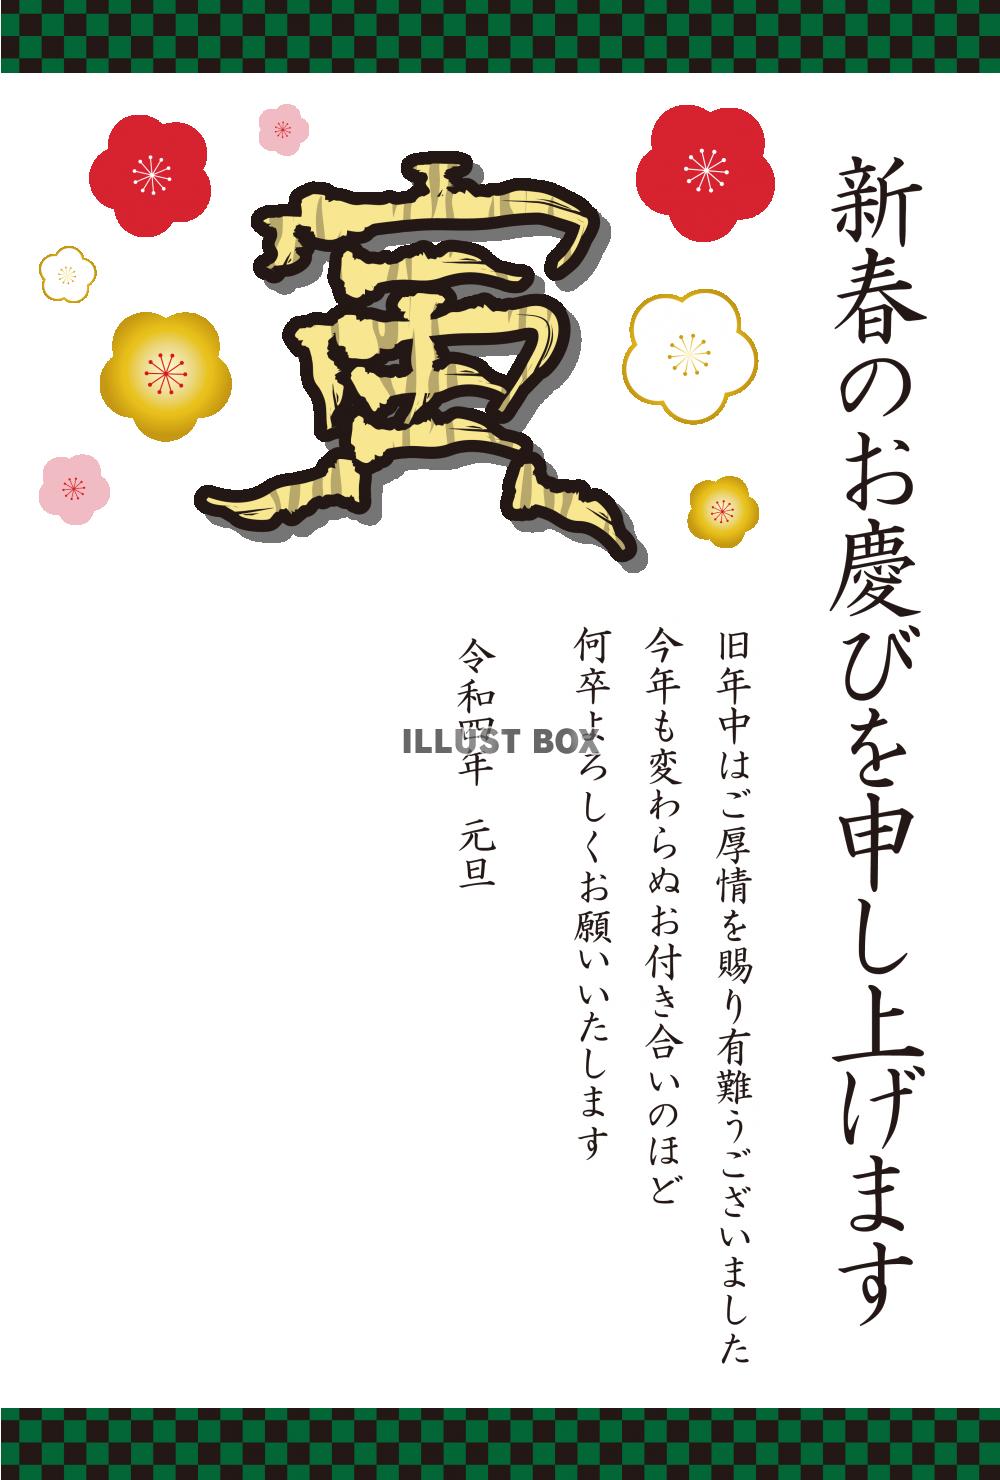 寅
新春のお慶びを申し上げます
旧年中はご厚情を賜り有難うございました
今年も変わらぬお付き合いのほど
何卒よろしくお願いいたします
令和四年 元旦
ILLUST BOX